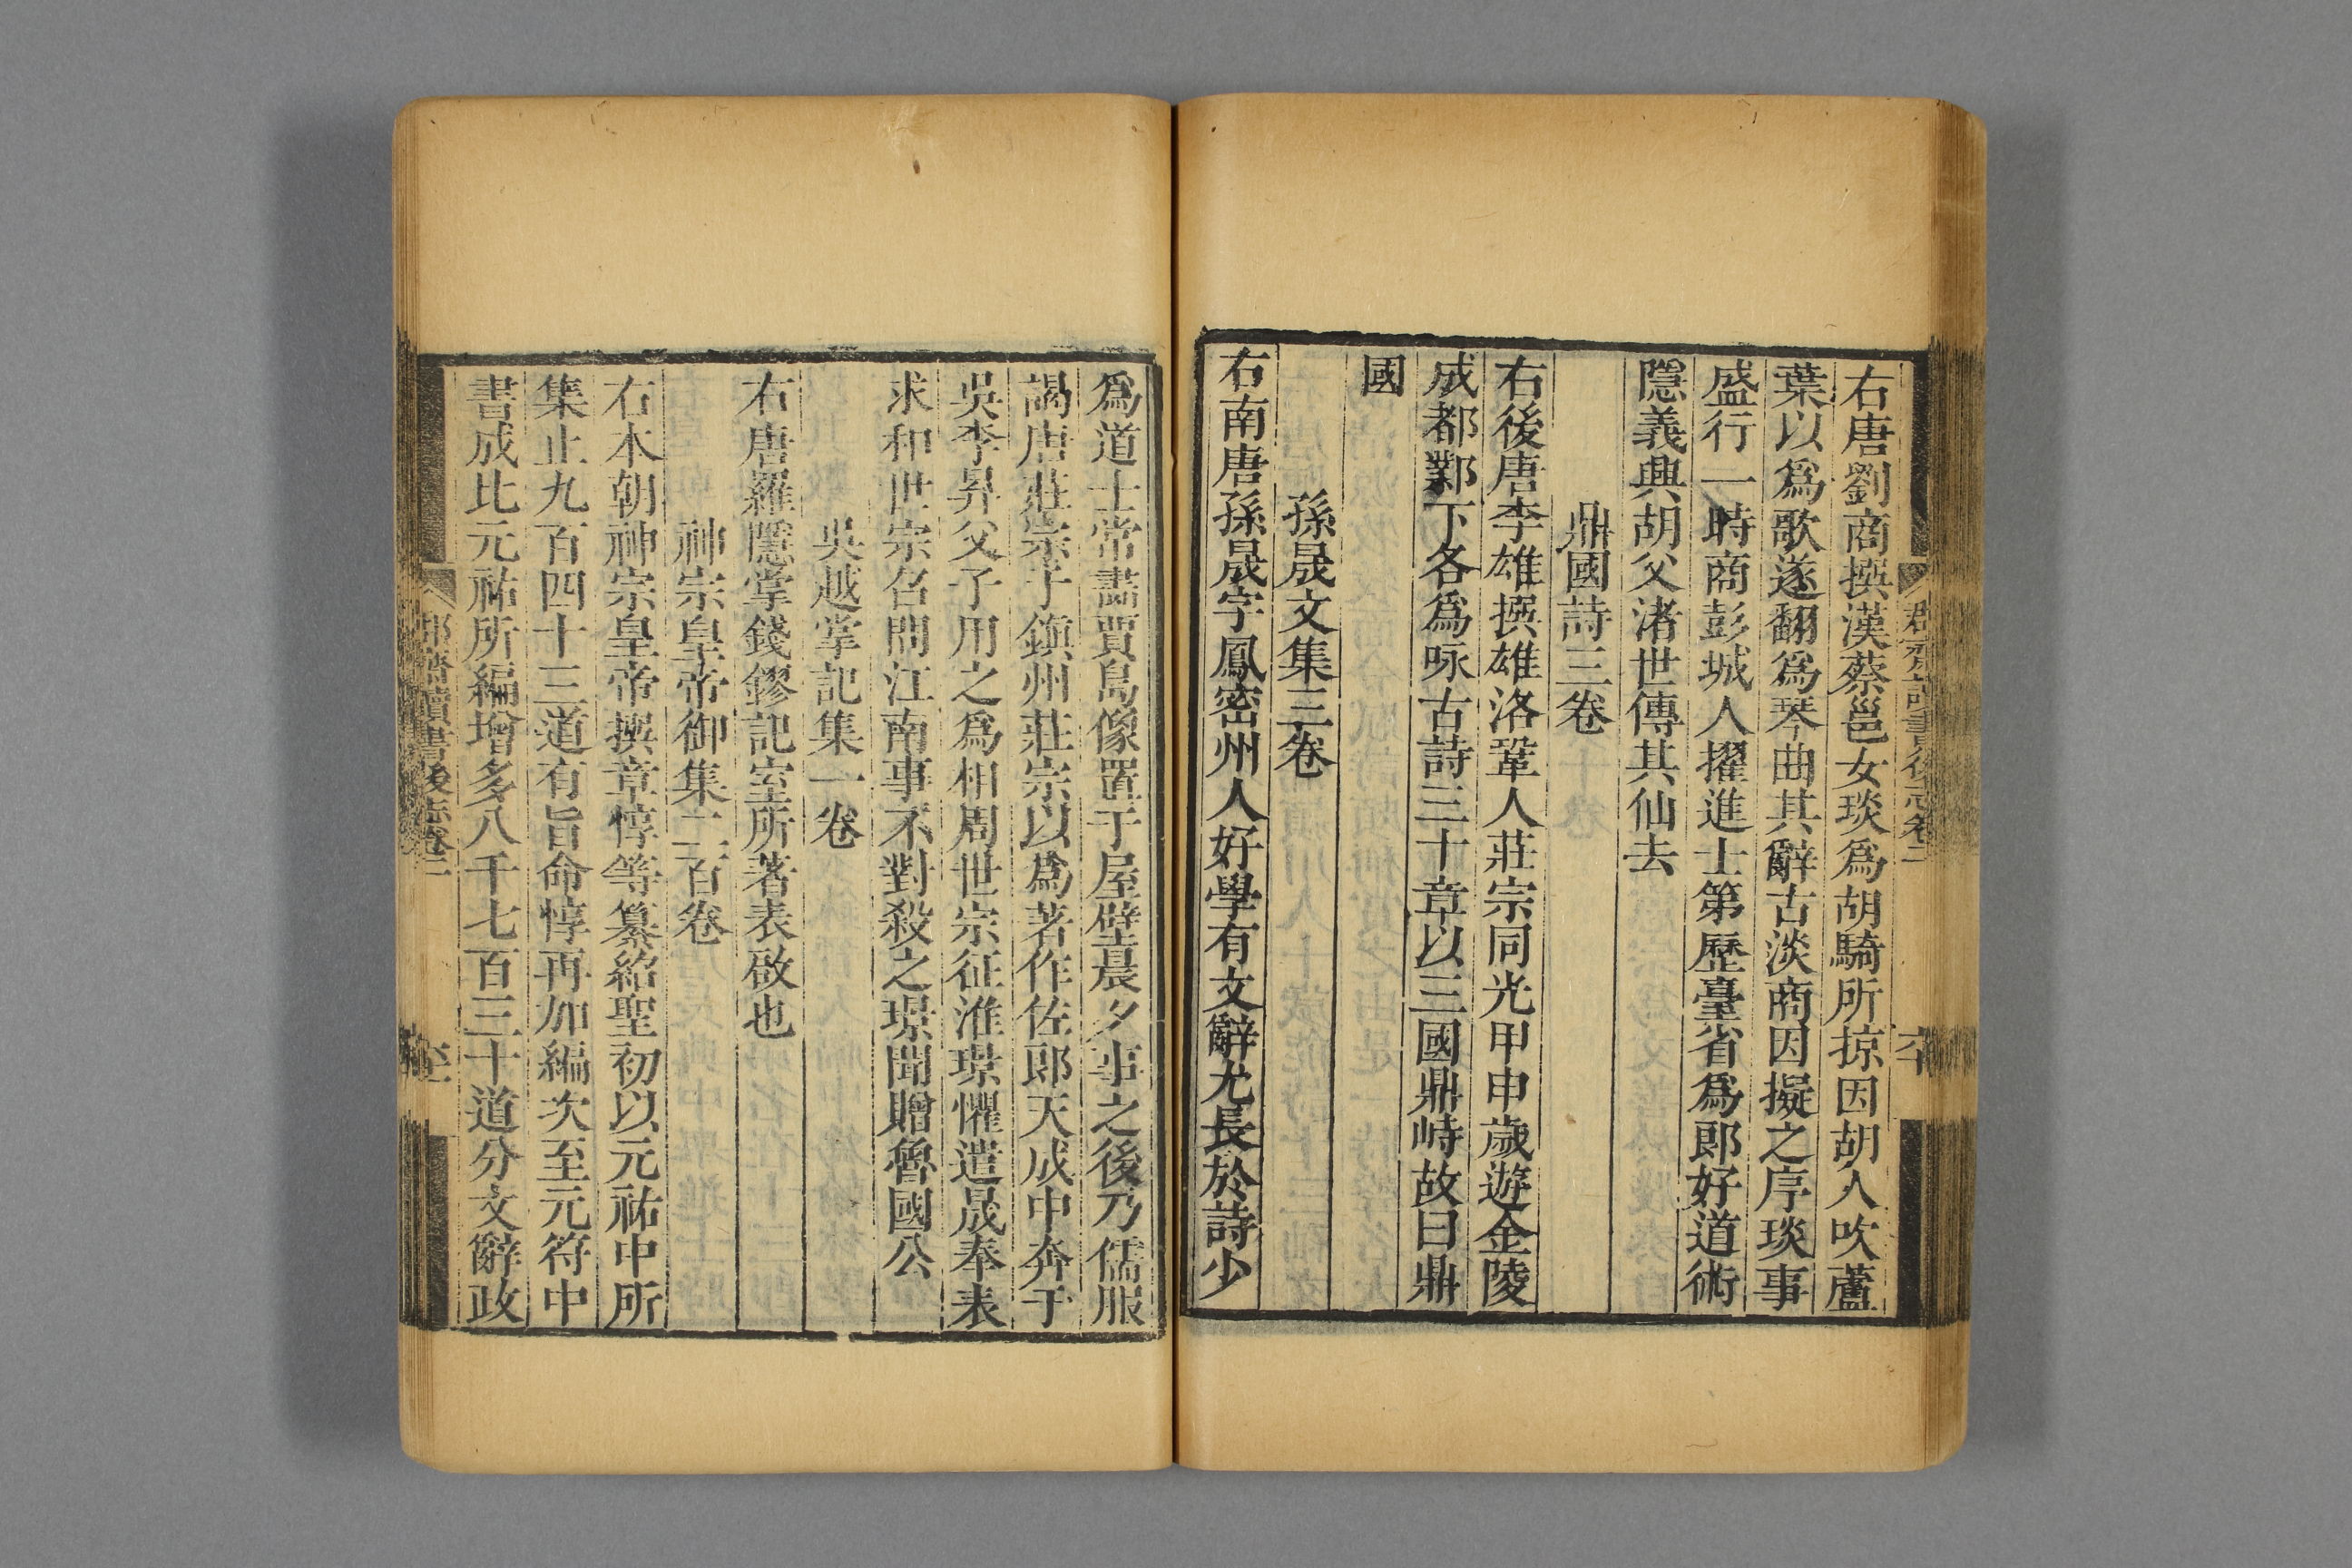 右唐劉商撰漢蔡邕女琰爲胡騎所掠因胡人吹蘆
葉以爲歌遂翻爲琴曲其辭古淡商因擬之序琰事
盛行一時商彭城人擢進士第歷臺省爲郎好道術
隱義興胡父渚世傳其仙去
鼎國詩三卷
右後唐李雄撰雄洛鞏人莊宗同光甲申歲遊金陵
成都鄴下各爲咏古詩三十章以三國鼎峙故曰鼎
國
孫晟文集三卷
右南唐孫晟字鳳密州人好學有文辭尤長於詩少
爲道士常畫賈島像置于屋壁晨夕事之後乃儒服
謁唐莊宗于鎭州莊宗以爲著作佐郎天成中奔于
吳李昪父子用之爲相周世宗征淮璟懼遣晟奉表
求和世宗召問江南事不對殺之璟聞贈魯國公
吳越掌記集一卷
右唐羅隱掌錢鏐記室所著表啟也
神宗皇帝御集二百卷
右本朝神宗皇帝撰章惇等纂紹聖初以元祐中所
集止九百四十三道有旨命惇再加編次至元符中
書成比元祐所編增多八千七百三十道分文辭政